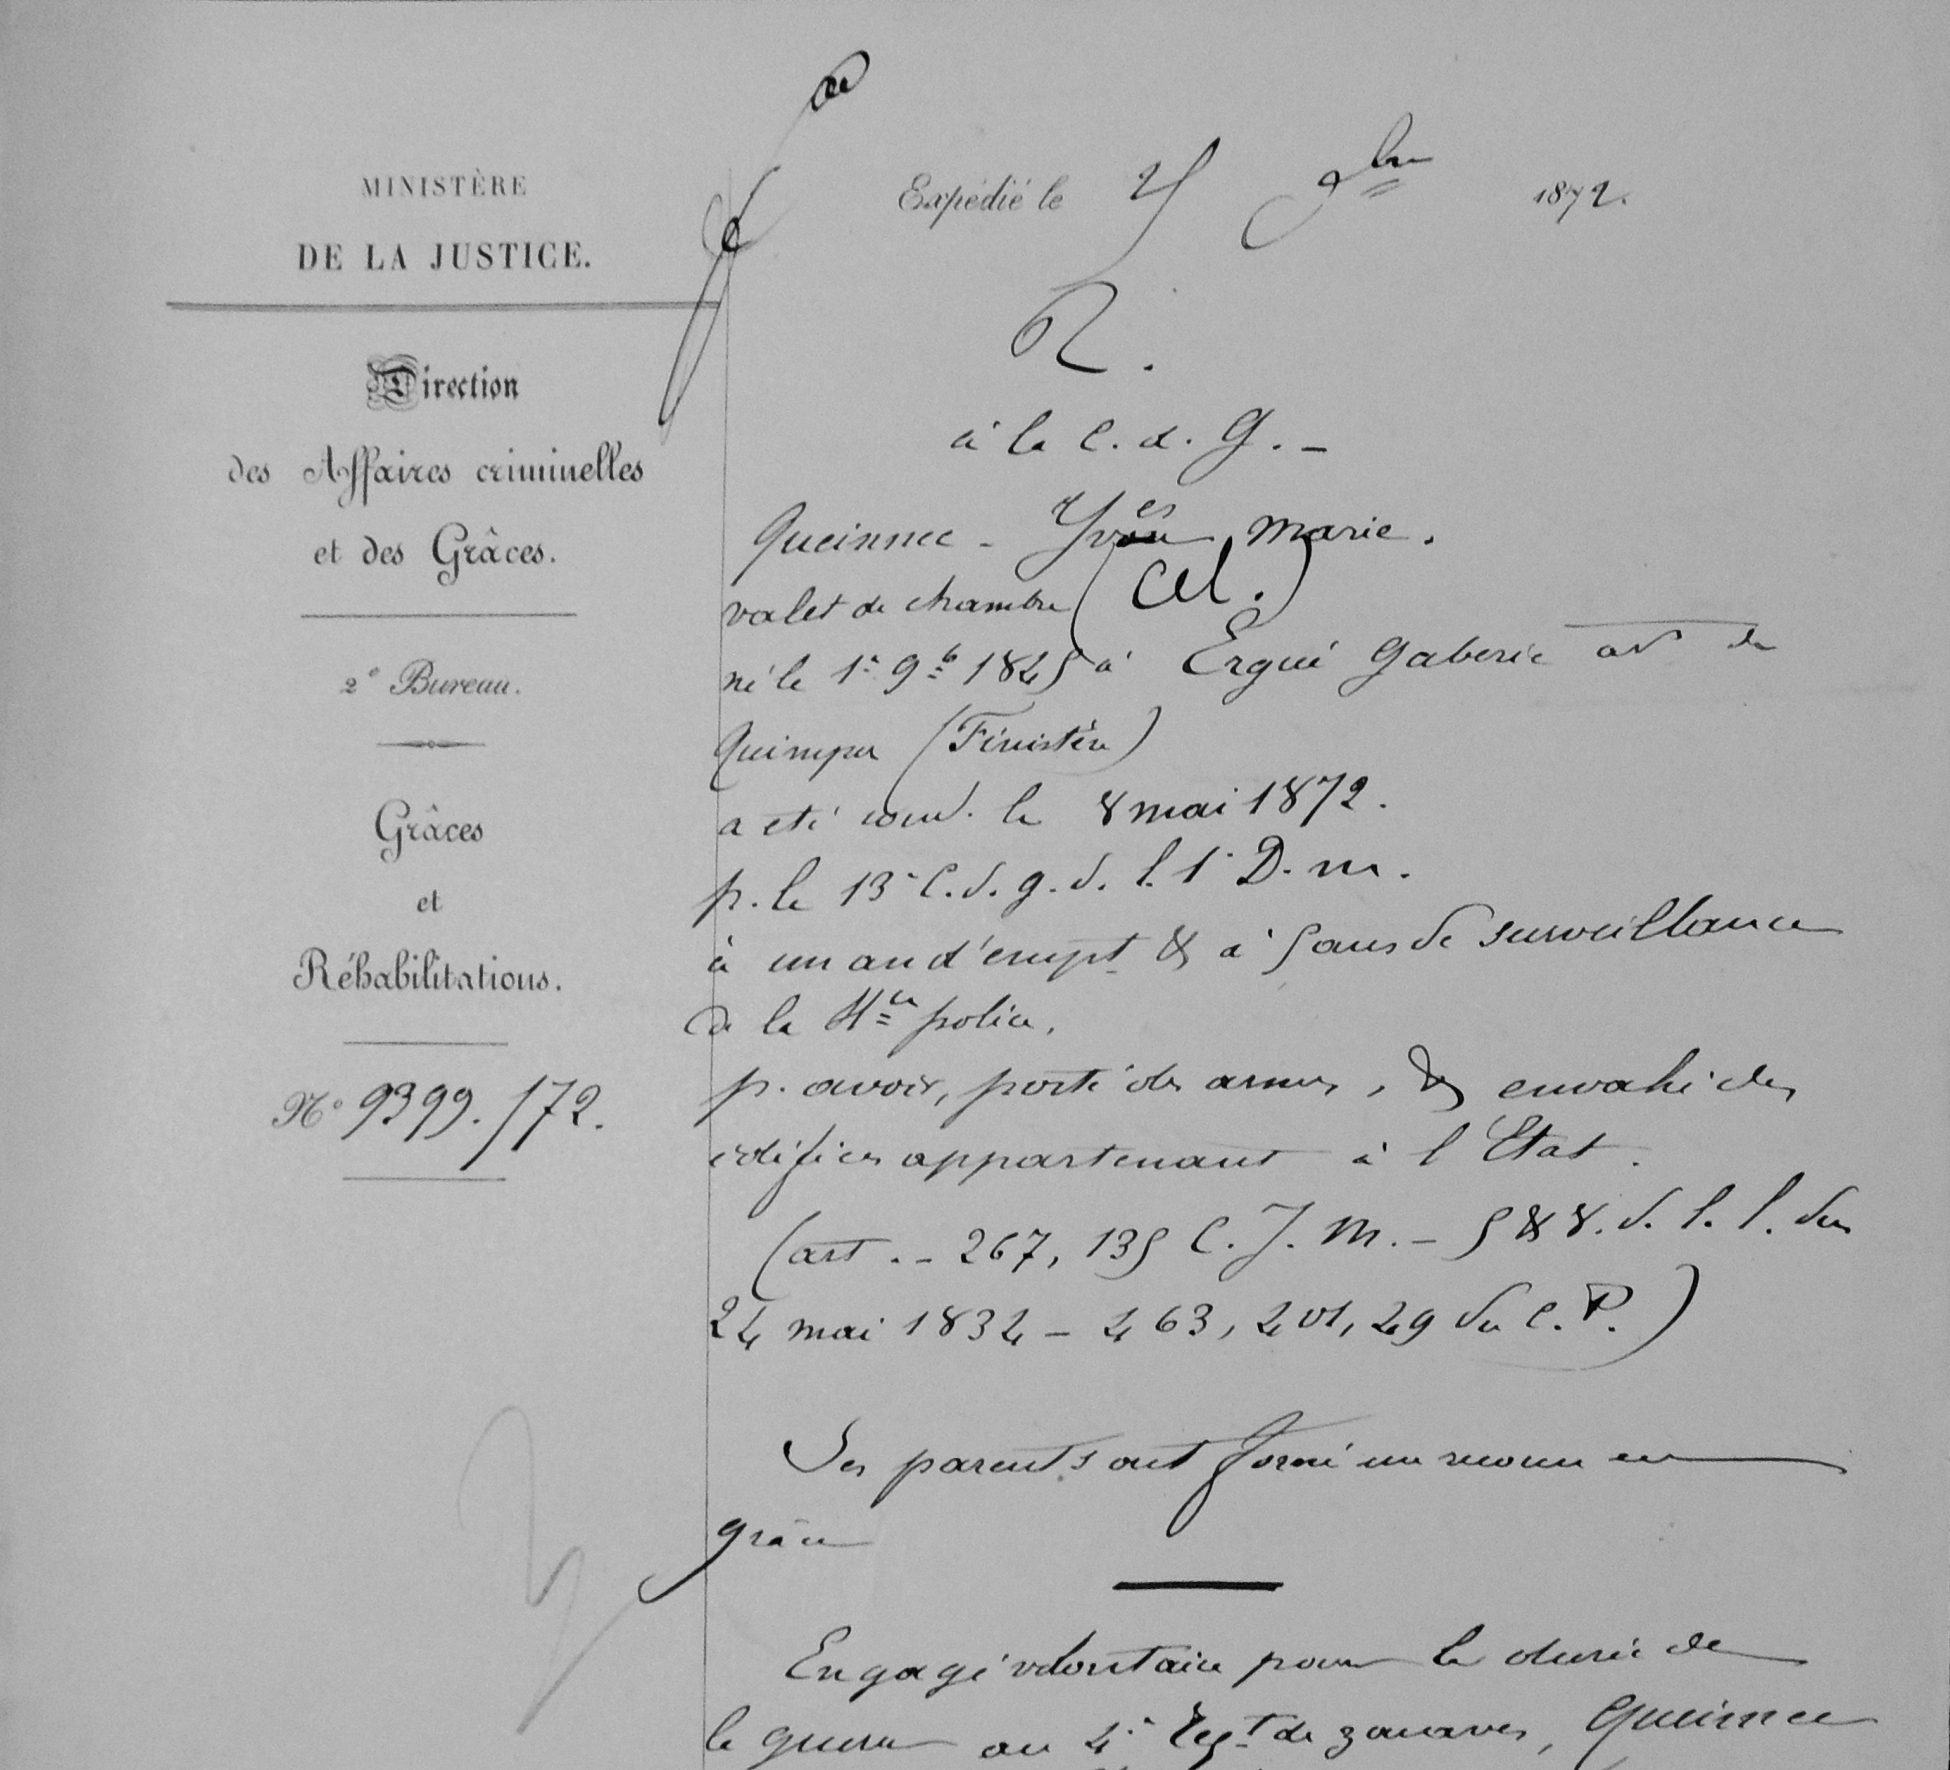 MINISTÈRE
DE LA JUSTICE.
Direction
des Affaires criminelles
et des Grâces.
2e Bureau.
Grâces
et
Réhabilitations.
No 9399./72.
Expédié le 25 9bre 1872.
R.
à la C. d. G. –
Queinnec – Yves Marie.
valet de chambre (Cel.)
né le 1er 9b 1845 à Ergué Gaberic arr de
Quimper (Finistère)
a eté cond. le 8 mai 1872.
p. le 13e C. d. g. d. l. 1e D. m.
à un an d'empt & à 5 ans de surveillance
de la Hte police,
p. avoir, porté des armes, & envahi des
edifices appartenant à l'Etat.
(art. – 267, 135 C. J. M. – 5 & 8. d. l. l. du
24 mai 1834 – 463, 401, 29 du C. P.)
Ses parents ont formé un recours en
grâce
Engagé volontaire pour la durée de
la guerre au 4e regt de zouaves, Queinnec